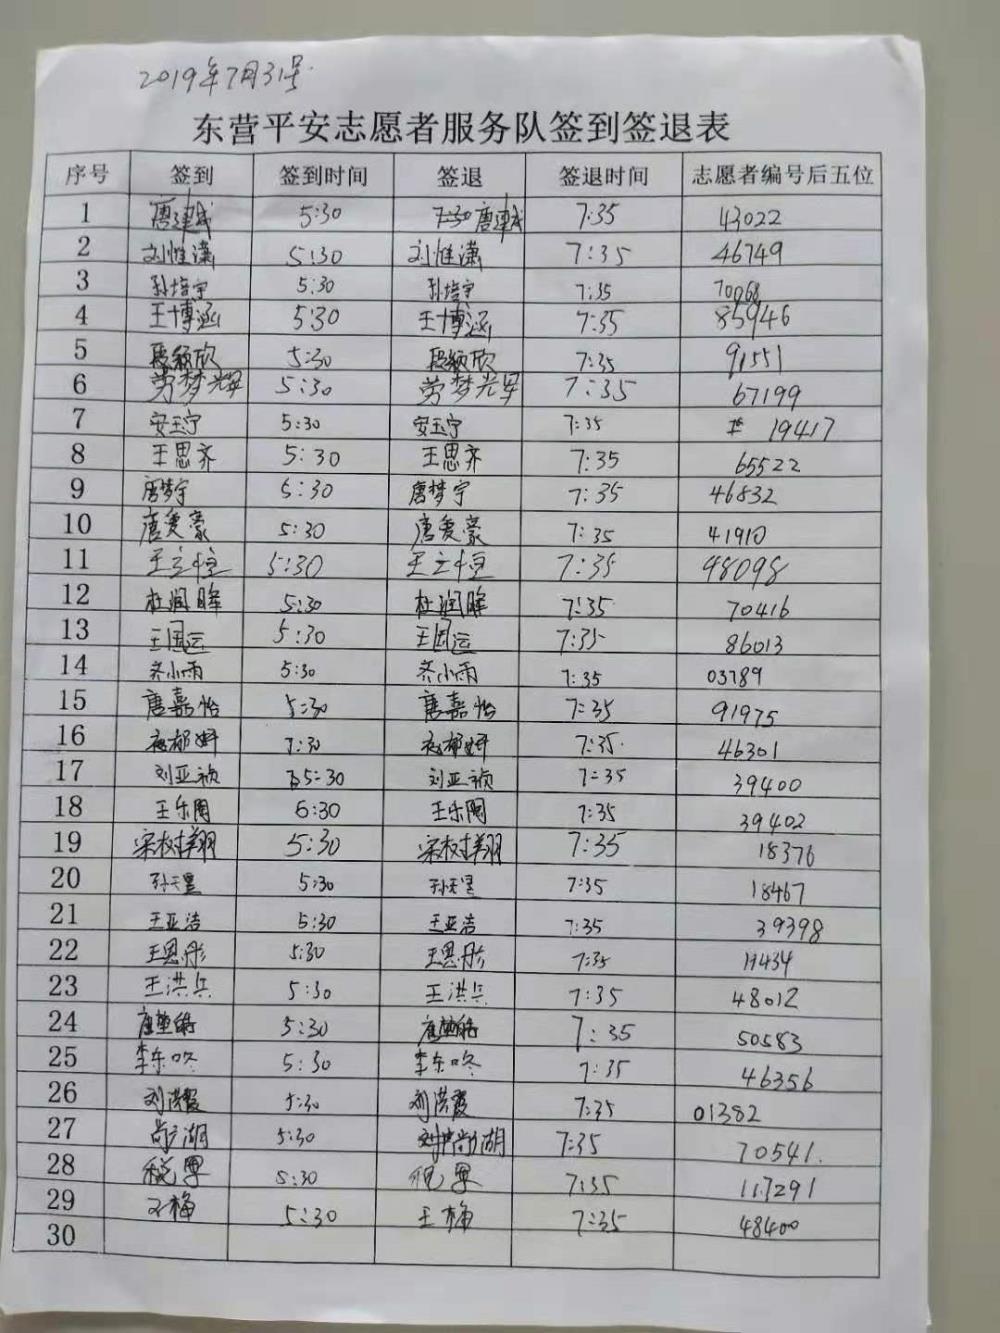 2019年7月31号
东营平安志愿者服务队签到签退表
序号 签到 签到时间 签退 签退时间 志愿者编号后五位
1 唐建成 5:30 7:30 唐建成 7:35 43022
2 刘惟潇 5:30 刘惟潇 7:35 46749
3 孙培宇 5:30 孙培宇 7:35 70068
4 王博涵 5:30 王博涵 7:35 85946
5 段颖欣 5:30 段颖欣 7:35 91551
6 劳梦 5:30 劳梦 7:35 67199
7 安玉宁 5:30 安玉宁 7:35 19417
8 王思齐 5:30 王思齐 7:35 65522
9 唐梦宇 5:30 唐梦宇 7:35 46832
10 唐爱豪 5:30 唐爱豪 7:35 41910
11 王立恒 5:30 王立恒 7:35 98098
12 杜润晖 5:30 杜润晖 7:35 70416
13 王国运 5:30 王国运 7:35 86013
14 齐小雨 5:30 齐小雨 7:35 03789
15 唐嘉怡 5:30 唐嘉怡 7:35 91975
16 5:30 7:35 46301
17 刘亚祯 5:30 刘亚祯 7:35 39400
18 王乐 6:30 王乐 7:35 39402
19 宋树翔 5:30 宋树翔 7:35 18376
20 孙天昱 5:30 孙天昱 7:35 18467
21 王亚洁 5:30 王亚洁 7:35 39398
22 王恩彤 5:30 王恩彤 7:35 11434
23 王洪兵 5:30 王洪兵 7:35 48012
24 唐 5:30 唐 7:35 50583
25 李东 5:30 李东 7:35 46356
26 刘洪霞 5:30 刘洪霞 7:35 01382
27 湖 5:30 尚湖 7:35 70541.
28 5:30 7:35 117291
29 王梅 5:30 王梅 7:35 48400
30